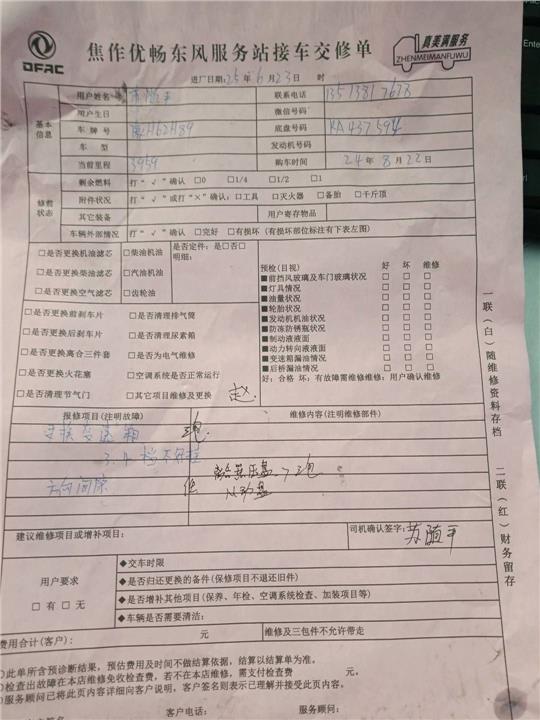 DFAC
焦作优畅东风服务站接车交修单
真美满服务
ZHENMEIMANFUWU
进厂日期:25年6月23日 时
基本信息
用户姓名
联系电话
用户生日 微信号码
车牌号 底盘号码 KA437594
车型 发动机号码
当前里程 3959 购车时间 24年8月22日
修前状态
剩余燃料 打“√”确认 □0 □1/4 □1/2 □1
附件状况 打“√”或打“×”确认:□工具 □灭火器 □备胎 □千斤顶
其它装备 用户寄存物品
车辆外部情况 打“√”确认 □完好 □有损坏 (有损坏部位标注有下表左图)
□是否更换机油滤芯 □柴油机油 是否定件:是□否□
明细:
□是否更换柴油滤芯 □汽油机油
□是否更换空气滤芯 □齿轮油
预检(目视) 好 坏 维修
■前挡风玻璃及车门玻璃状况 □ □ □
■灯具情况 □ □ □
■油量状况 □ □ □
■轮胎状况 □ □ □
■发动机机油状况 □ □ □
■防冻防锈瓶状况 □ □ □
■制动液液面 □ □ □
■动力转向液液面 □ □ □
■变速箱漏油情况 □ □ □
■后桥漏油情况 □ □ □
好:合格 坏:有故障需维修维修:用户确认维修
□是否更换前刹车片 □是否清理排气筒
□是否更换后刹车片 □是否清理尿素箱
□是否更换离合三件套 □是否为电气维修
□是否更换火花塞 □空调系统是否正常运行
□是否清理节气门 □其它项目维修及更换 赵
报修项目(注明故障) 维修内容(注明维修部件)
变速箱
3.4档不好挂
方向间隙
从动盘
建议维修项目或增补项目: 司机确认签字:苏随平
用户要求
□有 □无
◆交车时限
◆是否归还更换的备件(保修项目不退还旧件)
◆是否增补其他项目(保养、年检、空调系统检查、加装项目等)
◆车辆是否需要清洁:
费用合计(客户): 元 维修及三包件不允许带走
①此单所含预诊断结果,预估费用及时间不做结算依据,结算以结算单为准。
②检查出故障在本店维修免收检查费,若不在本店维修,需支付检查费 元。
服务顾问已将此页内容详细向客户说明,客户签名则表示已理解并接受此页内容。
客户电话: 服务顾问:
一联(白)随维修资料存档
二联(红)财务留存